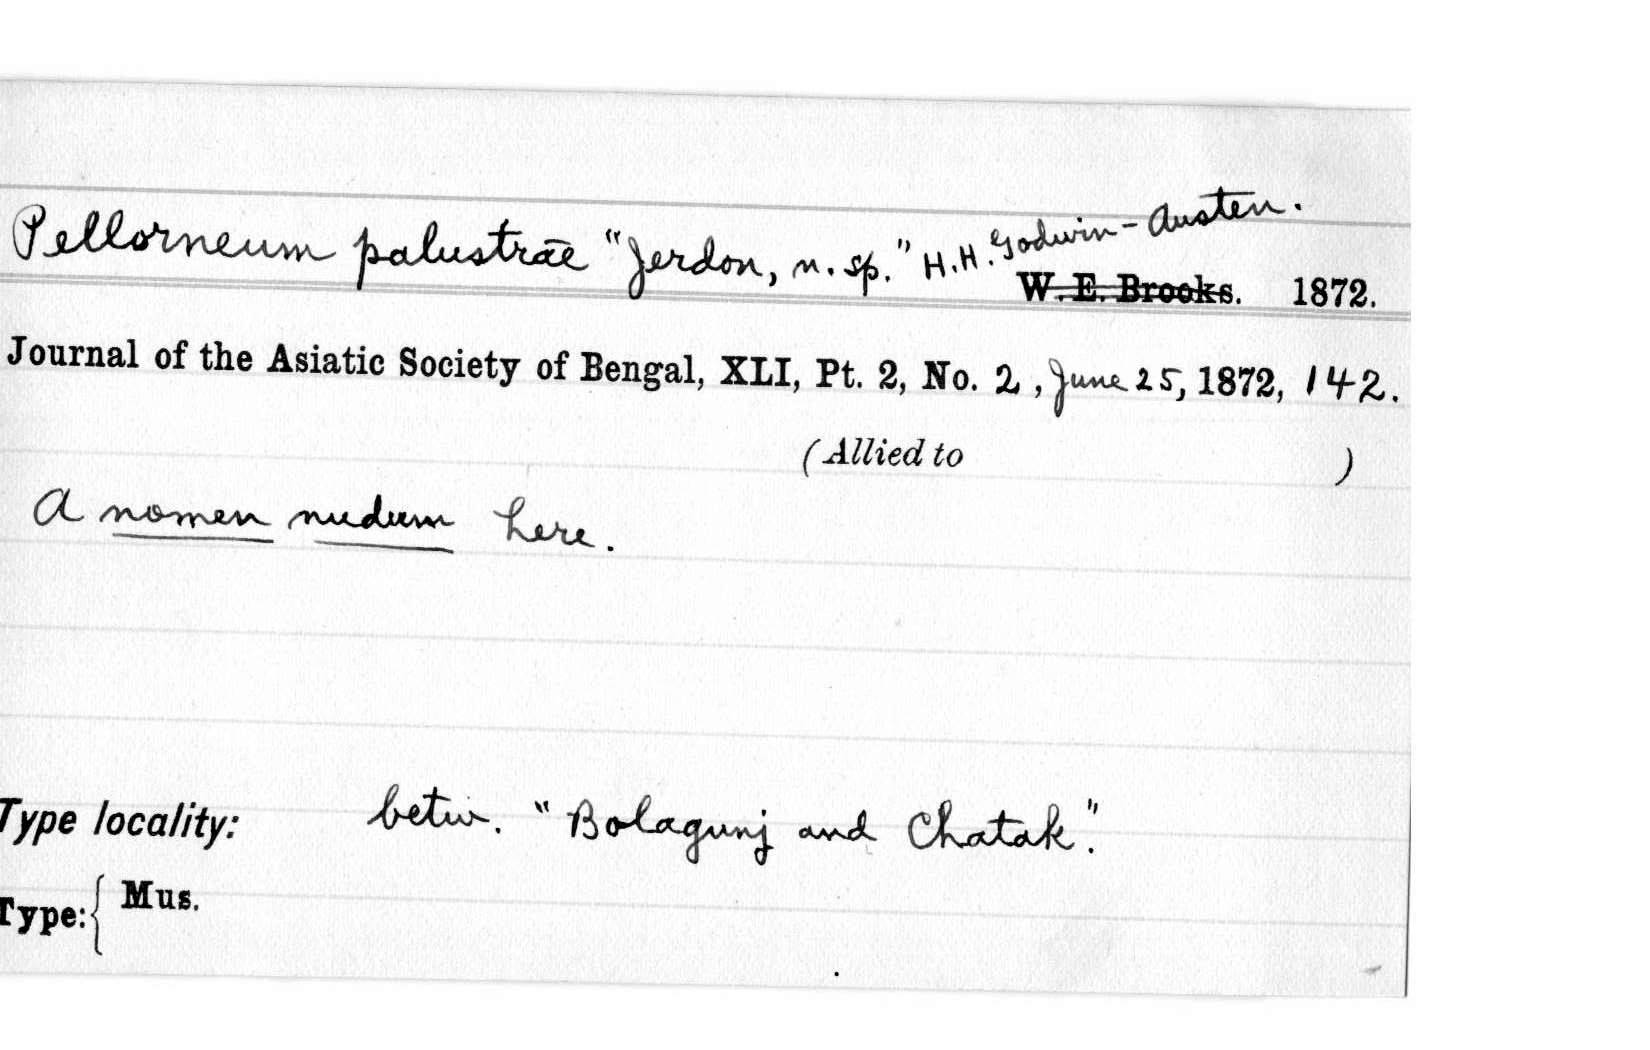 Pellorneum palustrae "Jerdon, n. sp." H.H. Godwin-Austen.
W. E. Brooks. 1872.
Journal of the Asiatic Society of Bengal, XLI, Pt. 2, No. 2, June 25, 1872, 142.
(Allied to )
A nomen nudum here.
Type locality: betw. "Bolagunj and Chatak."
Type: { Mus.